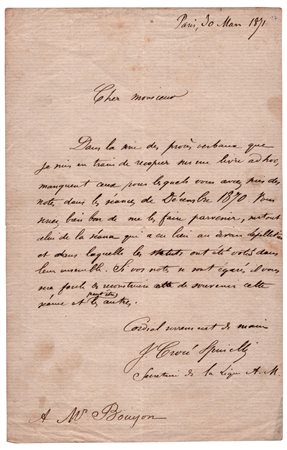 Paris, 30 Mars 1871
Cher monsieur
Dans la des procès verbaux que
je suis en train de recopier sur un livre ad hoc,
manquent ceux pour lesquels vous avez pris des
note dans les séances de Décembre 1870 Vous
seriez bien bon de me les faire parvenir, surtout
celui de la séance qui a eu lieu au
et dans laquelle les statuts ont été votés dans
leur ensemble. Si vos note ne sont égarés il vous
sera facile de reconstruire de souvenir cette
séance et peut être les autres.
Cordial serrement de main
J Crocé Spinelli
Secrétaire de la Ligue
A Mr